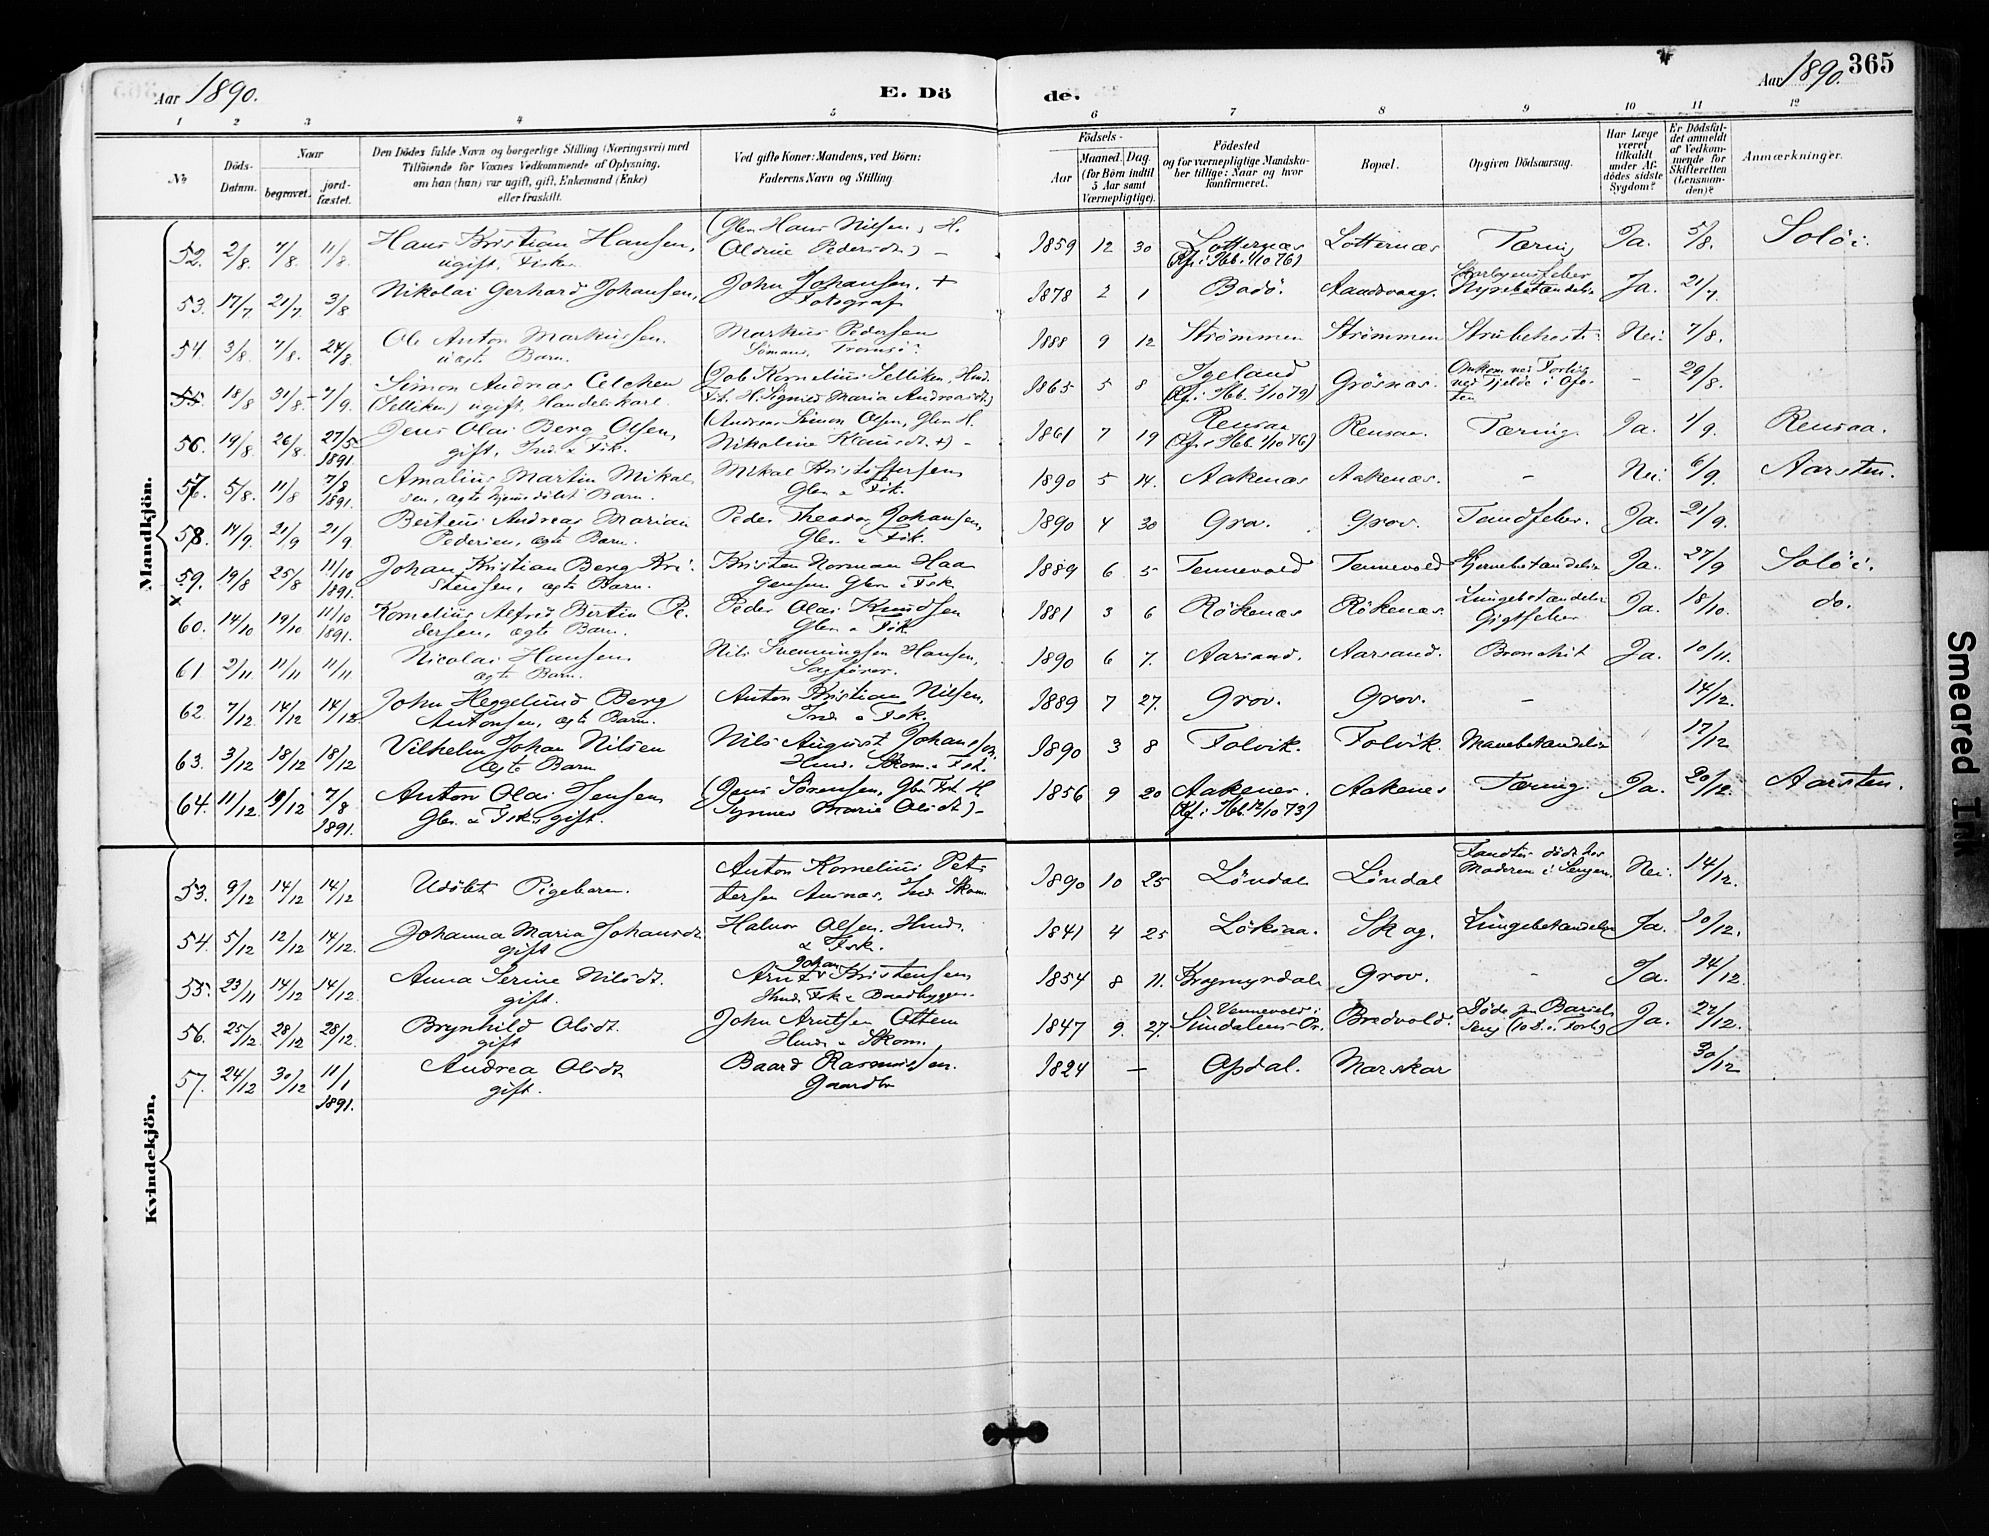 365
Aar 1890.
E. Dö
de.
Aar 1890.
1 2 3 4 5 6 7 8 9 10 11 12
No
Döds-
Datum.
Naar
begravet.
jord-
fæstet.
Den Dödes fulde Navn og borgerlige Stilling (Næringsvei) med
Tilföiende for Voxnes Vedkommende af Oplysning,
om han (hun) var ugift, gift, Enkemand (Enke)
eller fraskilt.
Ved gifte Koner: Mandens, ved Börn:
Faderens Navn og Stilling
Födsels-
Aar
Maaned. Dag.
(for Börn indtil
5 Aar samt
Værnepligtige).
Födested
og for værnepligtige Mandska-
ber tillige: Naar og hvor
konfirmeret.
Bopæl.
Opgiven Dödsaarsag.
Har Læge
været
tilkaldt
under Af-
dödes sidste
Sygdom?
Er Dödsfal-
det anmeldt
af Vedkom-
mende for
Skifteretten
(Lensman-
den)?
Anmærkninger.
Mandkjön.
52. 2/8 7/8 11/8 Hans Kristian Hansen,
ugift, Fisker
(Gbr. Hans Nilsen, H.
Aldine Pedersdt.)
1859 12 30 Lotternæs
Lotternæs Tæring Ja. 5/8. Solöi.
53. 17/7 21/7 3/8 Nikolai Gerhard Johansen,
John Johansen. +
Fotograf
1878 2 1 Bodö. Aandsvaag. Ja. 21/7
Nyrebetændelse
54. 3/8. 7/8. 24/8. Ole Anton Markussen.
uægte Barn.
Markus Pedersen
Sömand, Tromsö
1888 9 12 Strömmen Strömmen Strubehoste Nei. 7/8.
55. 18/8 31/8 7/9. Simon Andreas Celchen
(Selliken) ugift, Handelskarl.
(Job Kornelius Selliken, Hmd.
Fsk. H. Signild Maria Andreasdt.)
1865 5 8 Igeland
Grösnæs. Omkom ved Forlis
ved Fjelde i Ofo-
ten
- 29/8.
56. 19/8. 26/8. 27/5 1891. Jens Olai Berg Olsen,
gift, Ind. & Fsk.
(Andreas Simon Olsen, Gbr. H.
Nikoline Klausdt. +) -
1861 7 19 Rensaa
Rensaa. Tæring. Ja. 1/9. Rensaa.
57. 5/8. 11/8 7/8 1891. Amalius Martin Mikal-
sen, ægte hjemdöbt Barn.
Mikal Kristoffersen
Gbr. & Fsk.
1890 5 14. Aakenæs Aakenæs. - Nei. 6/9. Aarsten.
58. 14/9. 21/9 21/9. Berteus Andreas Marian
Pedersen, ægte Barn.
Peder Theodor Johansen,
Gbr. & Fsk.
1890 4 30 Grov. Grov. Tandfeber. Ja. 21/9.
59. 19/8 25/8 11/10 1891. Johan Kristian Berg Kri-
stensen, ægte Barn.
Kristen Norman Haa-
gensen Gbr. & Fsk
1889 6 5 Tennevold Tennevold Hjernebetændelse Ja. 27/9 Solöi.
60. 14/10 19/10 11/10 1891. Kornelius Alfred Bertin Pe-
dersen, ægte Barn.
Peder Olai Knudsen
Gbr. & Fsk
1881 3 6 Rökenæs Rökenæs. Lungebetændelse
Gigtfeber
Ja. 18/10. do.
61 2/11. 11/11 11/11 Nicolai Hansen.
ægte Barn.
Nils Svenningsen Hansen,
Sagförer.
1890 6 7. Aarsand. Aarsand. Bronchit Ja. 10/11.
62 7/12 14/12 14/12 John Heggelund Berg
Antonsen, ægte Barn.
Anton Kristian Nilsen,
Ind. & Fsk.
1889 7 27. Grov. Grov. - 14/12.
63. 3/12 18/12 18/12 Vilhelm Johan Nilsen
Ægte Barn
Nils August Johansen,
Hmd. Skom. & Fsk.
1890 3 8 Folvik. Folvik. Mavebetændelse 17/12
64. 11/12. 19/12 7/8 1891. Anton Olai Jensen
Gbr. & Fsk. gift.
(Jens Sörensen, Gbr. Fsk H
Synnev Marie Olsdt.)-
1856 9 20 Aakenes.
(Kf. i Hb. 12/10 73)
Aakenes Tæring. Ja. 20/12. Aarsten.
Kvindekjön.
53. 9/12 14/12 14/12 Udöbt Pigebarn.
Anton Kornelius Pet-
tersen Aunæs, Ind. Skom.
1890 10 25 Löndal Löndal Fandtes död hos
Moderen i Sengen.
Nei. 14/12.
54. 5/12 12/12 14/12. Johanna Maria Johansdt.
gift
Halvor Olsen. Hmd.
& Fsk.
1841 4 25 Löksaa. Skog. Lungebetændelse Ja. 20/12.
55. 23/11 14/12 14/12 Anna Serine Nilsdt.
gift.
Arnt Johan Kristensen
Hmd. Fsk & Baadbygger.
1854 8 11. Krogmyrdal Grov. - Ja. 14/12
56. 25/12. 28/12 28/12. Brynhild Olsdt.
gift
John Arntsen Ottem
Hmd. & Skom.
1847 9. 27. Vennevold i
Sundalens Pr.
Bredvold. Döde paa Barsel-
seng (10 d. e. Forl.)
Ja. 27/12.
57. 24/12 30/12 11/1 1891. Andrea Olsdt
gift.
Baard Rasmussen.
Gaardbr
1824 - Opdal. Marskar 30/12
Smeared Ink